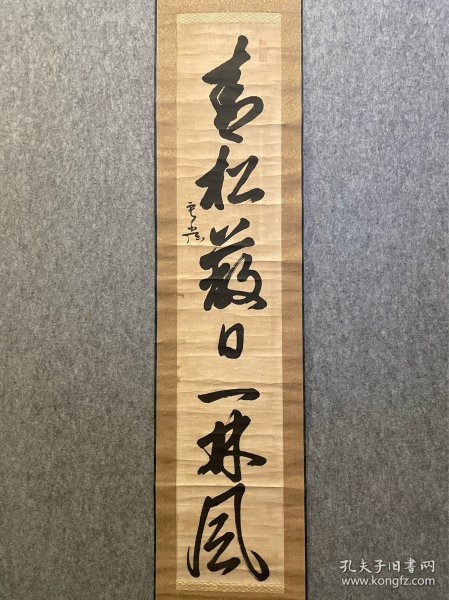 青松蔽日一林風
孔夫子旧书网
www.kongfz.com